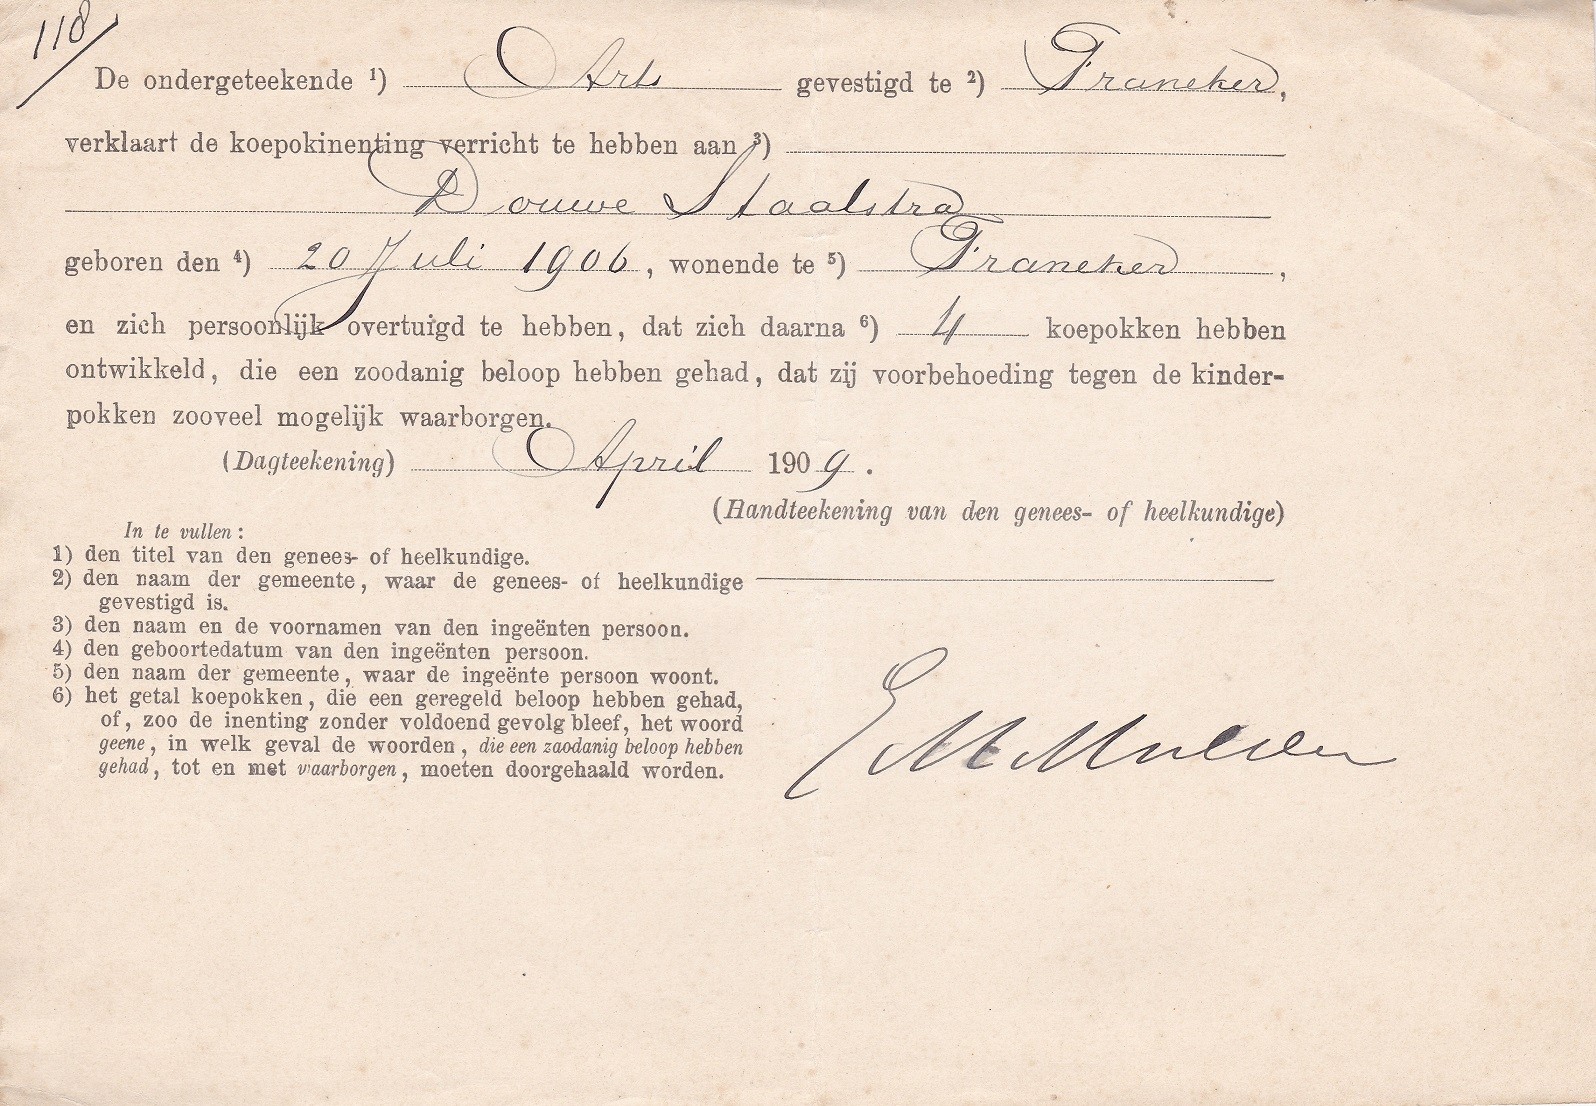 118
De ondergeteekende ¹) Arts gevestigd te ²) Franeker,
verklaart de koepokinenting verricht te hebben aan ³)
Douwe Staalstra
geboren den ⁴) 20 Juli 1906, wonende te ⁵) Franeker,
en zich persoonlijk overtuigd te hebben, dat zich daarna ⁶) 4 koepokken hebben
ontwikkeld, die een zoodanig beloop hebben gehad, dat zij voorbehoeding tegen de kinder-
pokken zooveel mogelijk waarborgen.
(Dagteekening) April 1909.
(Handteekening van den genees- of heelkundige)
In te vullen:
1) den titel van den genees- of heelkundige.
2) den naam der gemeente, waar de genees- of heelkundige
gevestigd is.
3) den naam en de voornamen van den ingeënten persoon.
4) den geboortedatum van den ingeënten persoon.
5) den naam der gemeente, waar de ingeënte persoon woont.
6) het getal koepokken, die een geregeld beloop hebben gehad,
of, zoo de inenting zonder voldoend gevolg bleef, het woord
geene, in welk geval de woorden, die een zaodanig beloop hebben
gehad, tot en met waarborgen, moeten doorgehaald worden.
E M Mulder